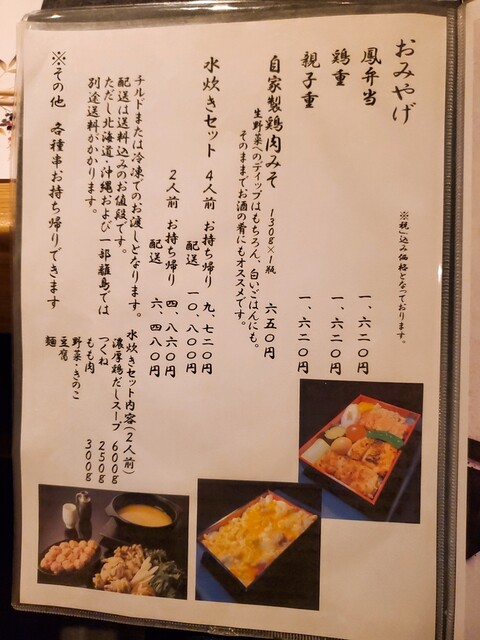 おみやげ
※税込み価格となっております。
鳳弁当 一、六二〇円
鶏重 一、六二〇円
親子重 一、六二〇円
自家製鶏肉みそ 130g×1瓶 六五〇円
生野菜へのディップはもちろん、白いごはんにも。
そのままでお酒の肴にもオススメです。
水炊きセット 4人前 お持ち帰り 九、七二〇円
配送 一〇、八〇〇円
2人前 お持ち帰り 四、八六〇円
配送 六、四八〇円
チルドまたは冷凍でのお渡しとなります。
配送は送料込みのお値段です。
ただし北海道・沖縄および一部離島では
別途送料がかかります。
水炊きセット内容(2人前)
濃厚鶏だしスープ 600g
つくね 250g
もも肉 300g
野菜・きのこ
豆腐
麺
※その他 各種串お持ち帰りできます